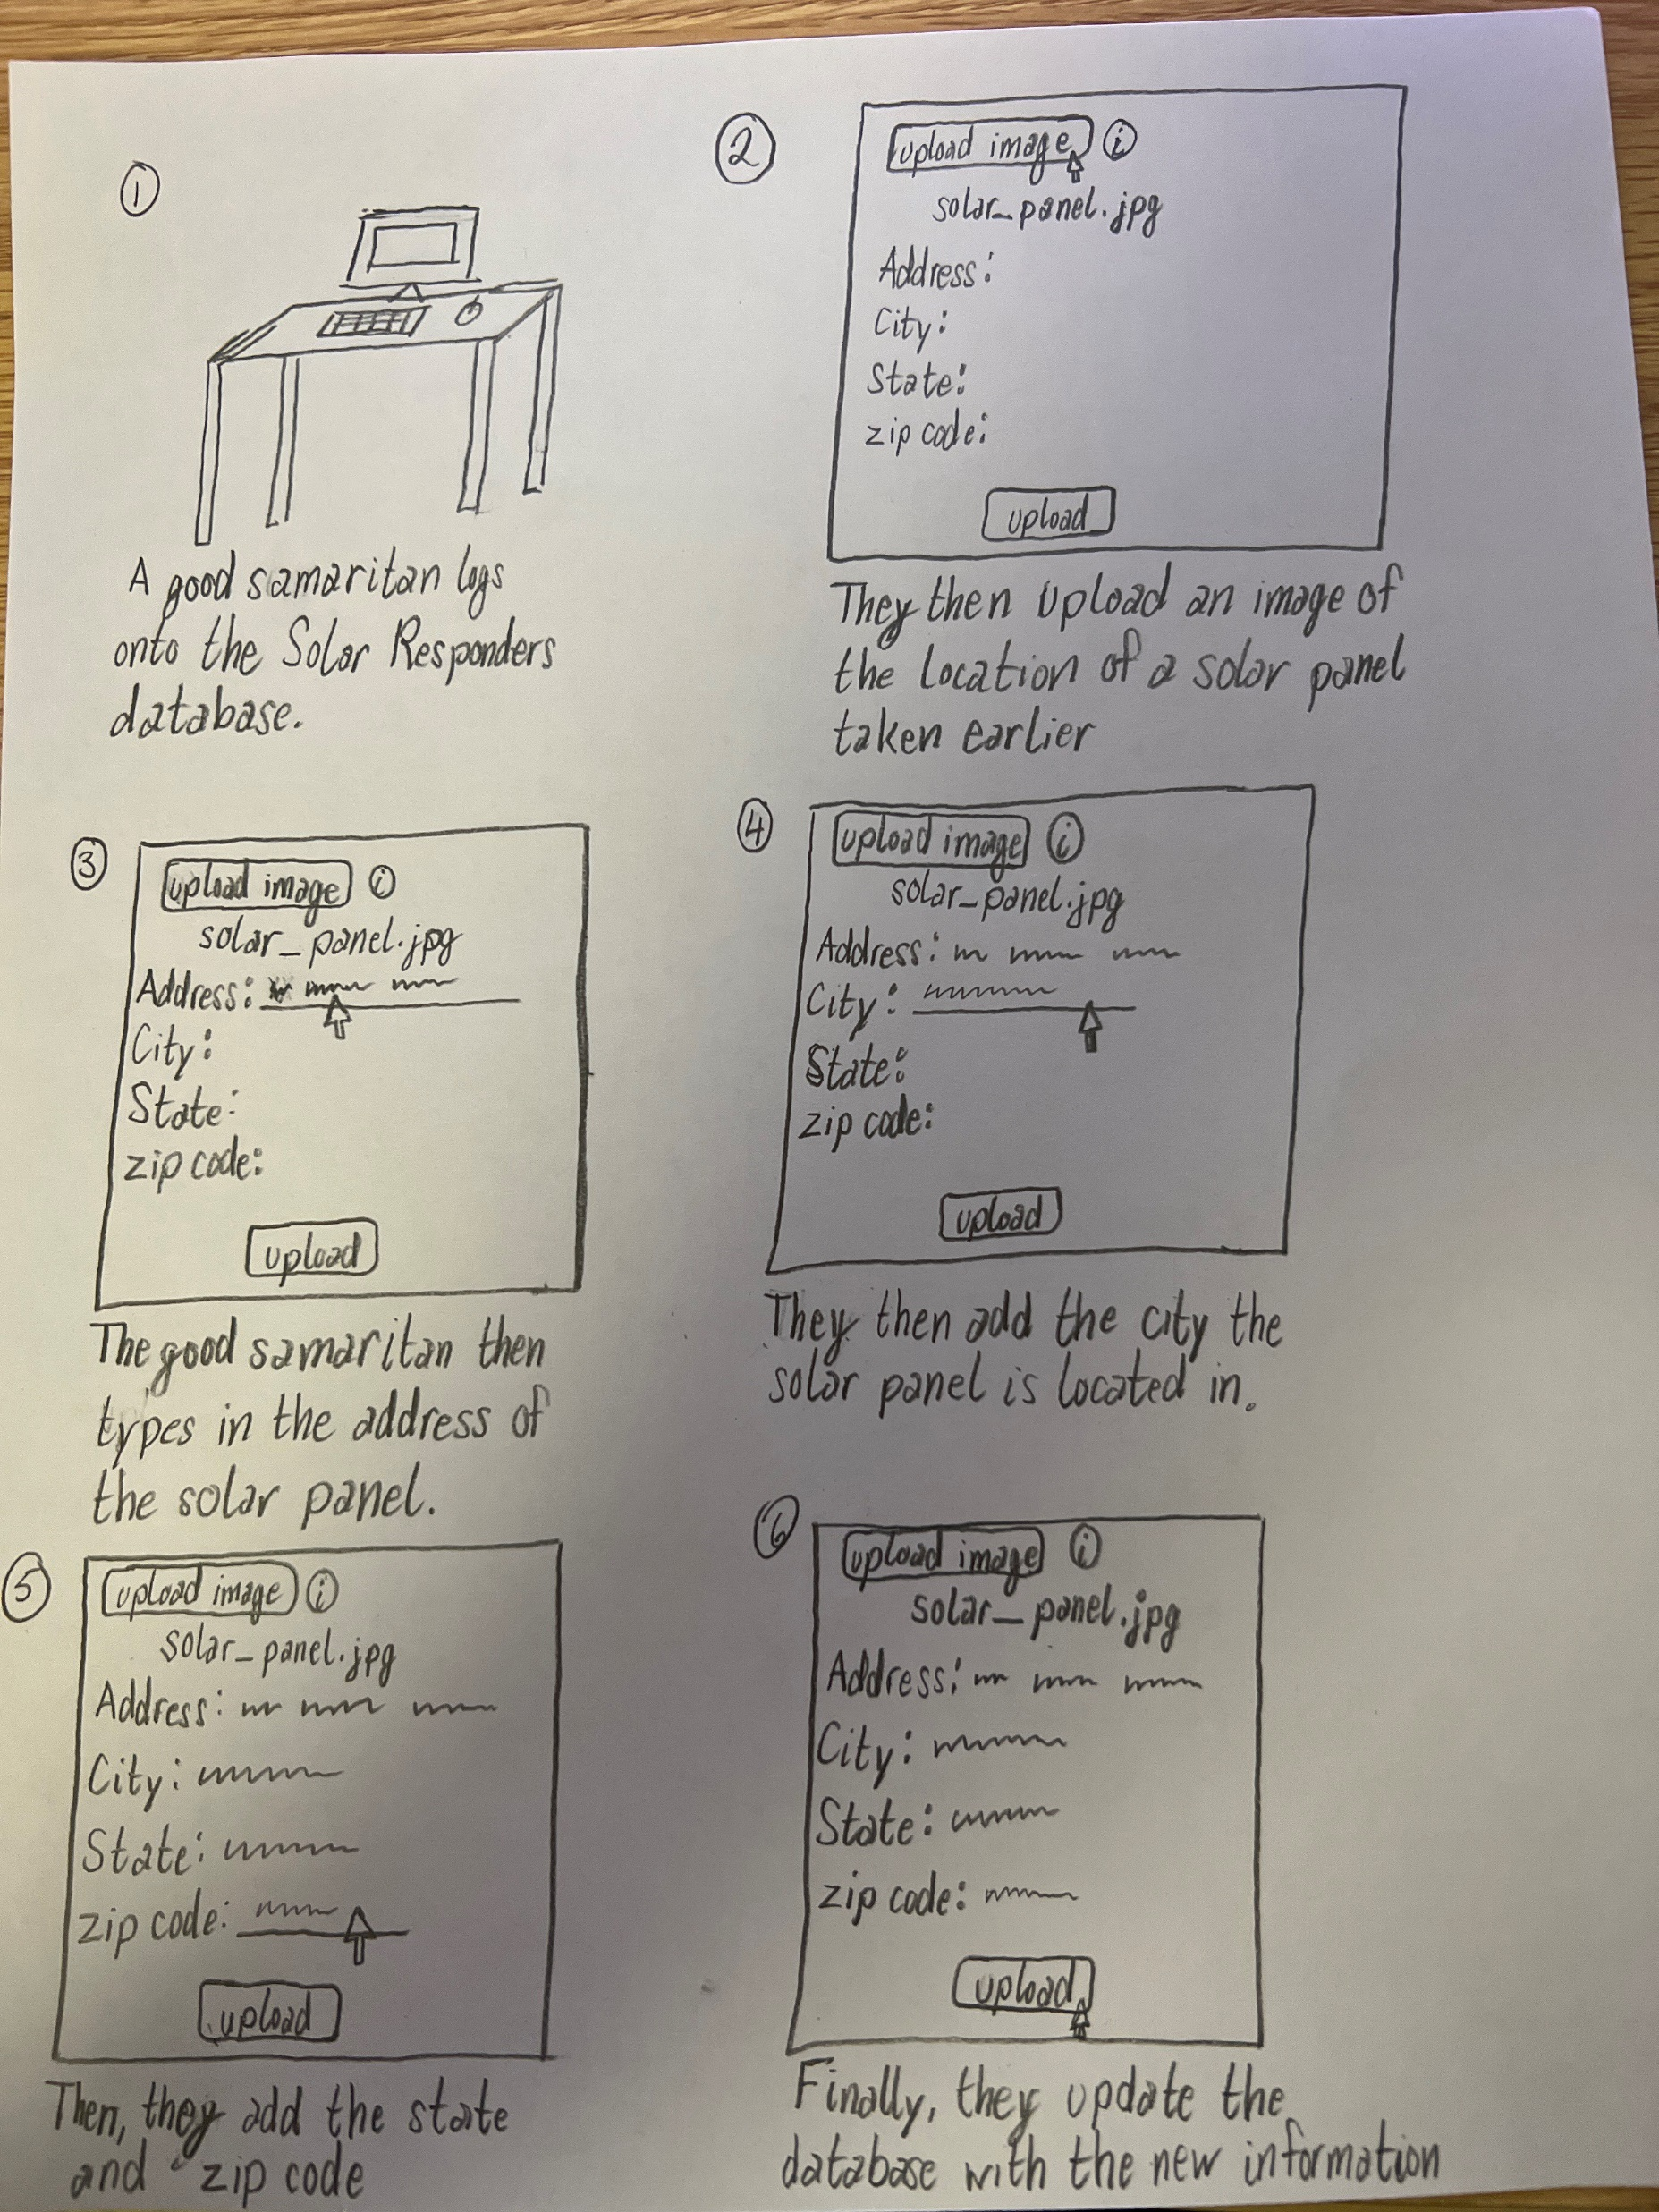 ①
A good samaritan logs
onto the Solar Responders
database.
②
upload image i
solar_panel.jpg
Address:
City:
State:
zip code:
upload
They then upload an image of
the location of a solar panel
taken earlier
③
upload image i
solar_panel.jpg
Address:
City:
State:
zip code:
upload
The good samaritan then
types in the address of
the solar panel.
④
upload image i
solar_panel.jpg
Address:
City:
State:
zip code:
upload
They then add the city the
solar panel is located in.
⑤
upload image i
solar_panel.jpg
Address:
City:
State:
zip code:
upload
Then, they add the state
and zip code
⑥
upload image i
solar_panel.jpg
Address:
City:
State:
zip code:
upload
Finally, they update the
database with the new information